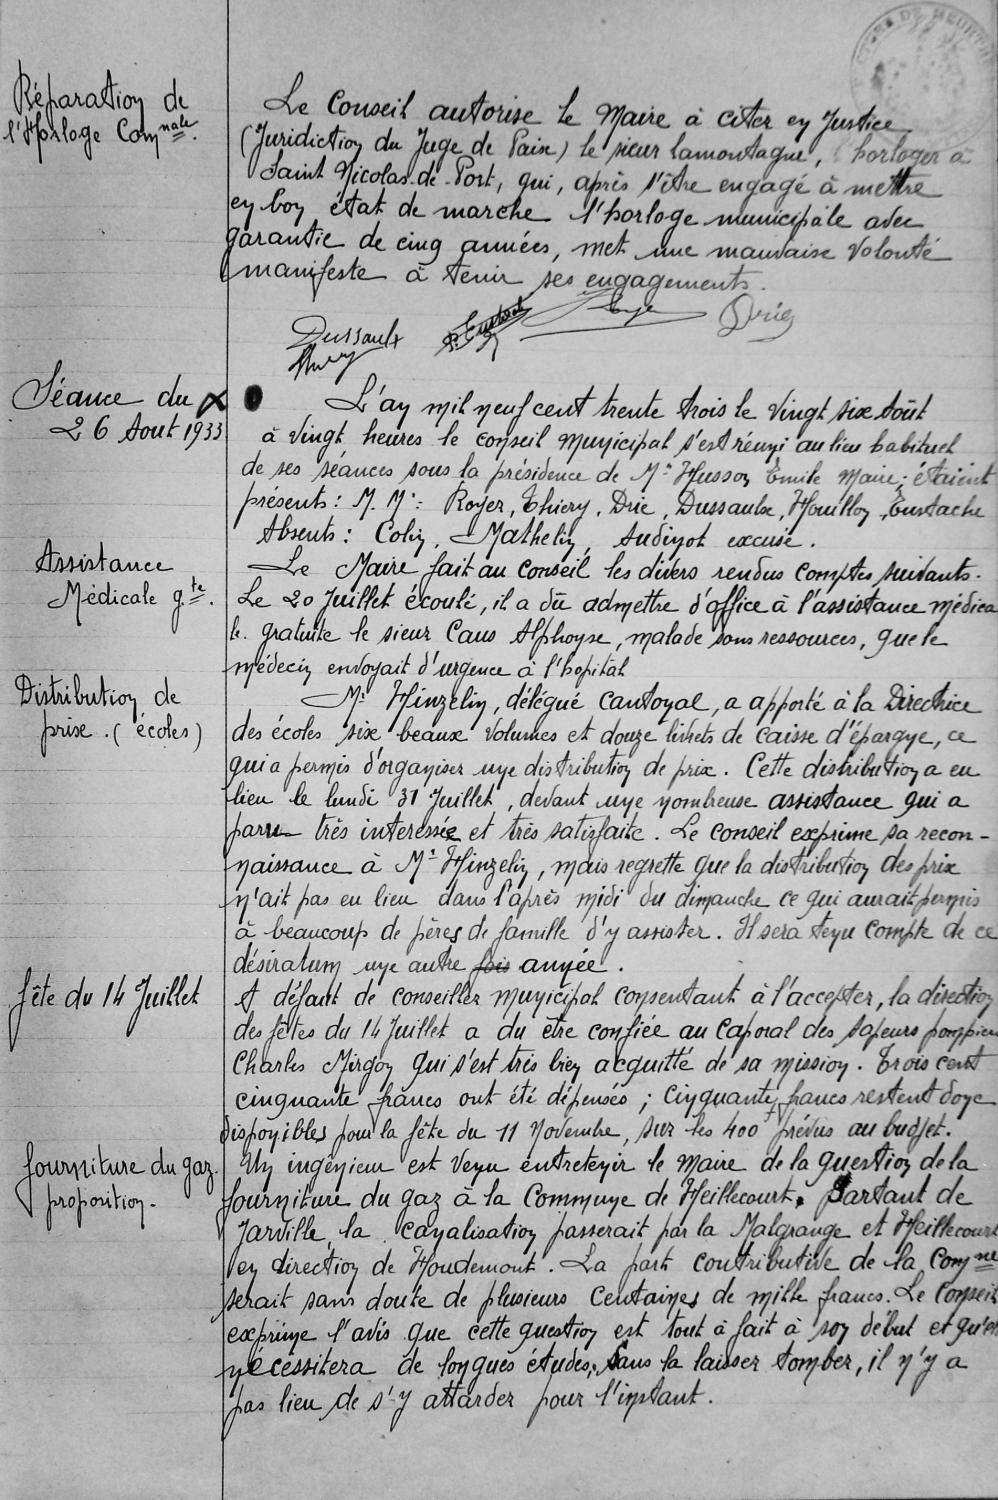 Réparation de
l'Horloge Comnale.
Le Conseil autorise le Maire à citer en Justice
(Juridiction du Juge de Paix) le sieur Lamontagne, horloger à
Saint Nicolas-de-Port, qui, après s'être engagé à mettre
en bon état de marche l'horloge municipale avec
garantie de cinq années, met une mauvaise volonté
manifeste à tenir ses engagements.
Dussaulx Eustache Royer Drie
Thiery
Séance du
26 Aout 1933
L'an mil neuf cent trente trois le vingt six Août
à vingt heures le conseil municipal s'est réuni au lieu habituel
de ses séances sous la présidence de Mr Husson Emile Maire; étaient
présents: M.Mrs: Royer, Thiery, Drie, Dussaulx, Houillon, Eustache
Absents: Colin, Mathelin, Audinot excusé.
Assistance
Médicale gte.
Le Maire fait au conseil les divers rendus comptes suivants.
Le 20 Juillet écoulé, il a dû admettre d'office à l'assistance médica
le gratuite le sieur Caus Alphonse, malade sans ressources, que le
médecin envoyait d'urgence à l'hopital
Distribution de
prix. (écoles)
Mr Hinzelin, délégué cantonal, a apporté à la Directrice
des écoles six beaux volumes et douze livrets de caisse d'épargne, ce
qui a permis d'organiser une distribution de prix. Cette distribution a eu
lieu le lundi 31 Juillet, devant une nombreuse assistance qui a
paru très interessée et très satisfaite. Le conseil exprime sa recon-
naissance à Mr Hinzelin, mais regrette que la distribution des prix
n'ait pas eu lieu dans l'après midi du dimanche ce qui aurait permis
à beaucoup de pères de famille d'y assister. Il sera tenu compte de ce
désiratum une autre fois année.
fête du 14 Juillet
A défaut de conseiller municipal consentant à l'accepter, la direction
des fêtes du 14 Juillet a du être confiée au caporal des sapeurs pompiers
Charles Mirgon qui s'est très bien acquitté de sa mission. Trois cent
cinquante francs ont été dépensés; cinquante francs restent donc
disponibles pour la fête du 11 Novembre, sur les 400f prévus au budjet.
fourniture du gaz.
proposition.
Un ingénieur est venu entretenir le Maire de la question de la
fourniture du gaz à la Commune de Heillecourt. Partant de
Jarville, la canalisation passerait par la Malgrange et Heillecourt
en direction de Houdemont. La part contributive de la Comne
serait sans doute de plusieurs centaines de mille francs. Le Conseil
exprime l'avis que cette question est tout à fait à son début et qu'elle
nécessitera de longues études. Sans la laisser tomber, il n'y a
pas lieu de s'y attarder pour l'instant.